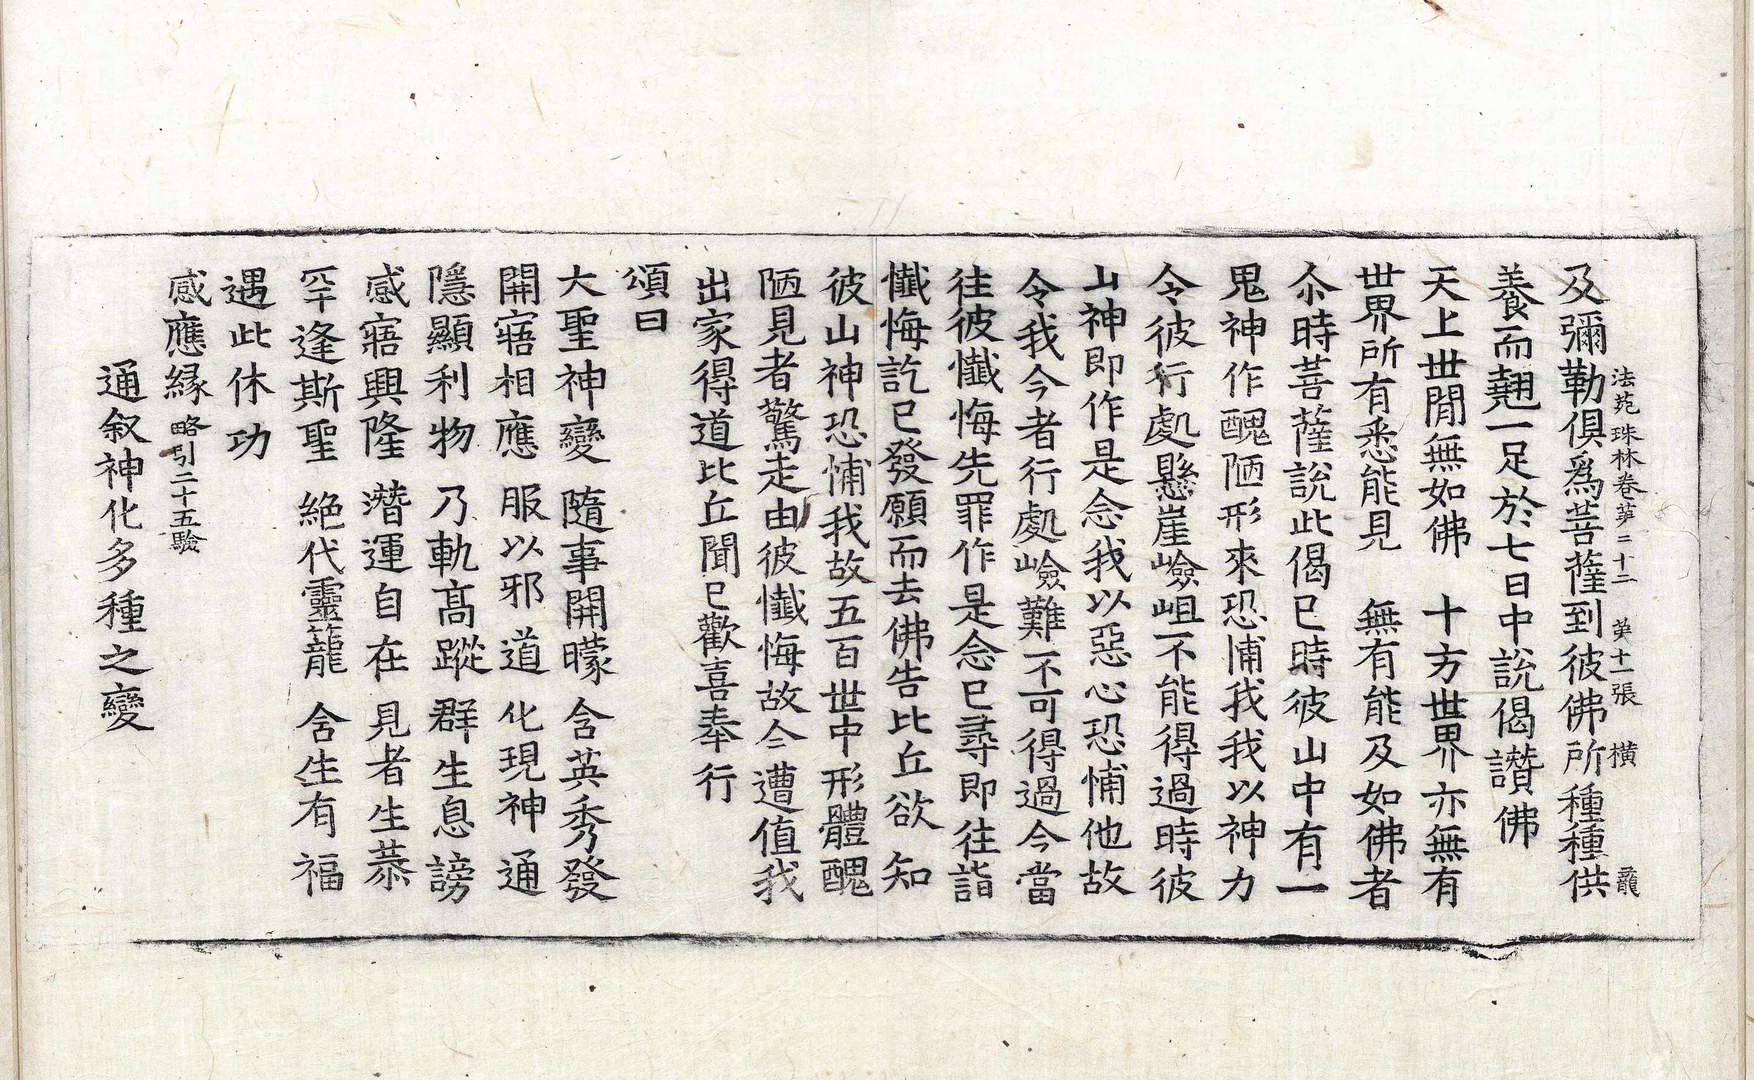 法苑珠林卷苐二十二 苐十一張 橫 龍
及彌勒俱爲菩薩到彼佛所種種供
養而翹一足於七日中說偈讃佛
天上世間無如佛 十方世界亦無有
世界所有悉能見 無有能及如佛者
尒時菩薩說此偈已時彼山中有一
鬼神作醜陋形來恐怖我我以神力
令彼行處懸崖嶮岨不能得過時彼
山神即作是念我以惡心恐怖他故
令我今者行處嶮難不可得過今當
往彼懺悔先罪作是念已尋即往詣
懺悔訖已發願而去佛告比丘欲知
彼山神恐怖我故五百世中形體醜
陋見者驚走由彼懺悔故今遭值我
出家得道比丘聞已歡喜奉行
頌曰
大聖神變 隨事開曚 含英秀發
開寤相應 服以邪道 化現神通
隱顯利物 乃軌髙蹤 群生息謗
感寤興隆 潛運自在 見者生恭
罕逢斯聖 絶代靈龍 含生有福
遇此休功
感應縁 略引二十五驗
通叙神化多種之變